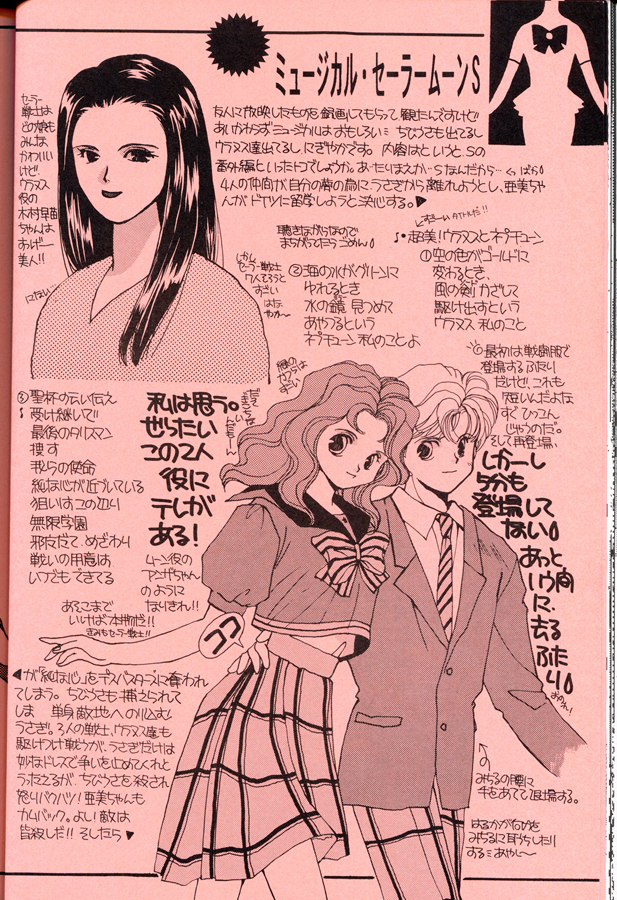 ミュージカル・セーラームーンS
友人に放映したものを録画してもらって観たんですけど
あいかわらずミュージカルはおもしろいミ ちびうさも出てるし
ウラヌス達出てるしにぎやかです。内容はというと、Sの
番外編といったトコでしょうか。あ・たりまえか…Sなんだから…
4人の仲間が自分の夢の為にうさぎから離れようとし、亜美ちゃ
んがドイツに留学しようと決心する。▶
セーラー
戦士は
どの娘も
みんな
かわいい
けど、
ウラヌス
役の
木村早苗
ちゃんは
美人!!
にてない
聴きながらなので
まちがってたらごめん
♪・超美!ウラヌスとネプチューン
①空の色がゴールドに
変わるとき、
風の剣かざして
駆け出すという
ウラヌス 私のこと
②海の水がグリーンに
ゆれるとき
水の鏡 見つめて
あやつるという
ネプチューン 私のことよ
しかし
セーラー戦士
7人そろうと
すごい
はな
やか〜
③聖杯の云い伝え
受け継いで!!
最後のタリスマン
捜す
我らの使命
純な心が近づいている
狙いはこの辺り
無限学園
邪だて、めざわり
戦いの用意は
いつでもできてる
私は思う。
ぜったい
この2人
役に
テレが
ある!
ムーン役の
アンザちゃん
のように
なりきれ!!
あそこまで
いけば本物だ!!
きみもセーラー戦士!!
最初は戦闘服で
登場するふたり
だけど、これも
短いんだよな
すぐひっこん
じゃうのだ。
そして再登場、
しかーし
5分も
登場して
ない
あっと
いう間
に、去る
ふたり
おのれ!
ココ
◀が「純な心」をデスバスターズに奪われ
てしまう。ちびうさも捕えられて
しまい 単身敵地へのり込む
うさぎ。3人の戦士、ウラヌス達も
駆けつけ戦うが、うさぎだけは
妙なドレスで争いを止めてくれと
うったえるが、ちびうさを殺され
怒りバクハツ!亜美ちゃんも
カムバック。よし!敵は
皆殺しだ!!そしたら▶
みちるの腰に
手をあてて退場する。
はるかがなぜか
みちるに耳うちしたり
するミあやし〜